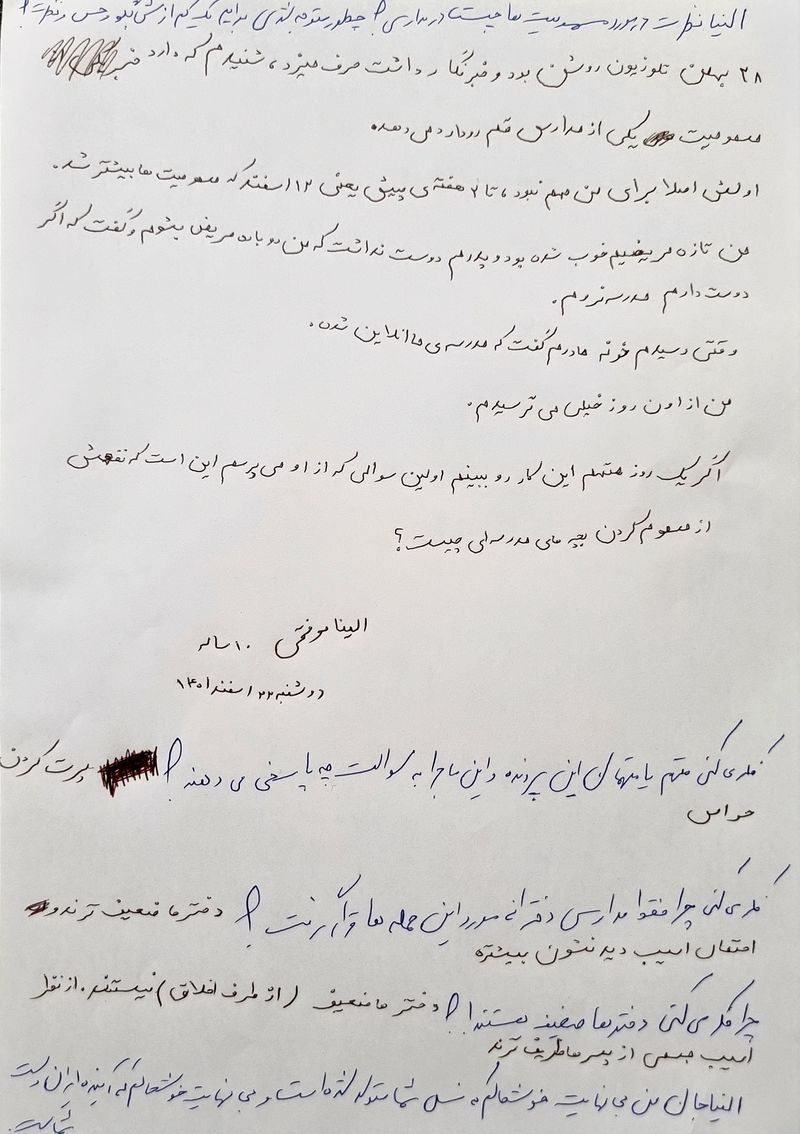 الینا نظرت در مورد مسمومیت ها چیست در مدارس؟ چطور متوجه شدی برایم یکم از بگو و حس و نظرت؟
۲۸ بهمن تلوزیون روشن بود و خبرنگار داشت حرف میزد، شنیدم که دارد خبر
مسمومیت یکی از مدارس قم رو دارد می دهد.
اولش اصلا برای من مهم نبود، تا ۲ هفته ی پیش یعنی ۱۲ اسفند که مسمومیت ها بیشتر شد.
من تازه مریضیم خوب شده بود و پدرم دوست نداشت که من دوباره مریض بشوم و گفت که اگر
دوست دارم مدرسه نروم.
وقتی رسیدم خونه مادرم گفت که مدرسه ی ما انلاین شده.
من از اون روز خیلی می ترسیدم.
اگر یک روز متهم این کار رو ببینم اولین سوالی که از او می پرسم این است که نقعش
از مسموم کردن بچه های مدرسه ای چیست؟
الینا موفقی ۱۰ ساله
دوشنبه ۲۲ اسفند ۱۴۰۱
فکر می کنی متهم یا متهمان این پرونده و این ماجرا به سوالت چه پاسخی می دهند؟ پرت کردن
حواس
فکر می کنی چرا فقط مدارس دخترانه مورد این حمله ها قرار گرفت؟ دختر ها ضعیف ترند و
احتمال اسیب دیدنشون بیشتره
چرا فکر می کنی دخترها ضعیف هستند!؟ دختر ها ضعیف (از طرف اخلاق) نیستند. از نظر
اسیب جسمی از پسرها ظریف ترند
الینا جان من بی نهایت خوشحالم که نسل شما متولد شده است و بی نهایت خوشحالم که آینده ایران دست
شماست.